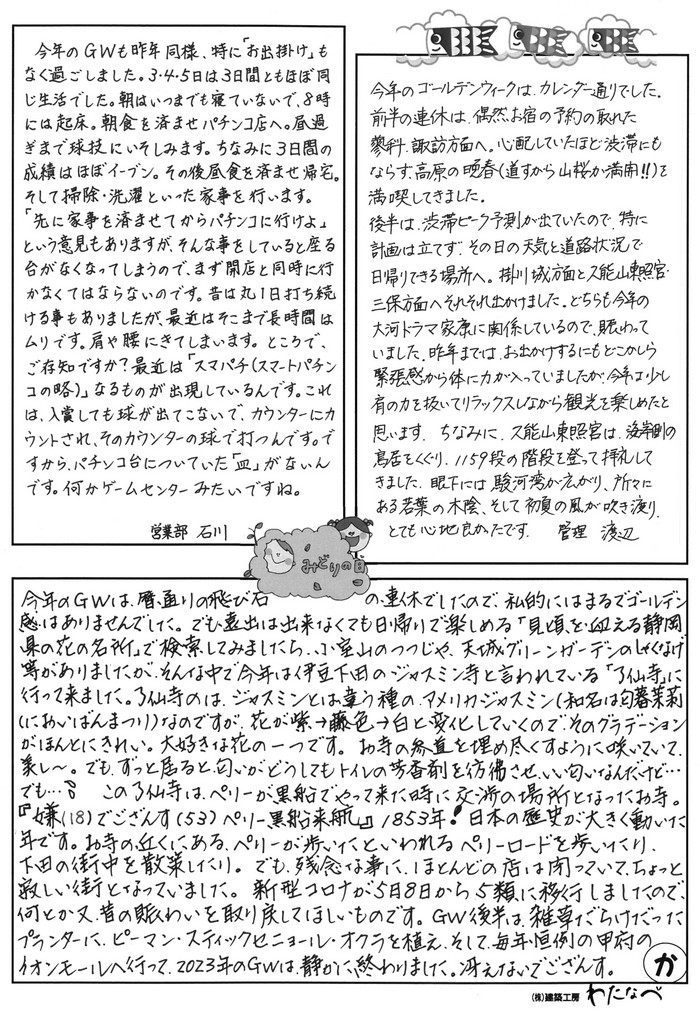 今年のGWも昨年同様、特に「お出掛け」も
なく過ごしました。3・4・5日は3日間ともほぼ同
じ生活でした。朝はいつまでも寝ていないで、8時
には起床。朝食を済ませパチンコ店へ。昼過
ぎまで球技にいそしみます。ちなみに3日間の
成績はほぼイーブン。その後昼食を済ませ帰宅。
そして掃除・洗濯といった家事を行います。
「先に家事を済ませてからパチンコに行けよ」
という意見もありますが、そんな事をしていると座る
台がなくなってしまうので、まず開店と同時に行
かなくてはならないのです。昔は丸1日打ち続
ける事もありましたが、最近はそこまで長時間は
ムリです。肩や腰にきてしまいます。ところで、
ご存知ですか?最近は「スマパチ(スマートパチン
コの略)」なるものが出現しているんです。これ
は、入賞しても球が出てこないで、カウンターにカ
ウントされ、そのカウンターの球で打つんです。で
すから、パチンコ台についていた「皿」がないん
です。何かゲームセンターみたいですね。
営業部 石川
今年のゴールデンウィークは、カレンダー通りでした。
前半の連休は、偶然お宿の予約の取れた
蓼科、諏訪方面へ。心配していたほど渋滞にも
ならず、高原の晩春(道すがら山桜が満開!!)を
満喫してきました。
後半は、渋滞ピーク予測が出ていたので、特に
計画は立てず、その日の天気と道路状況で
日帰りできる場所へ。掛川城方面と久能山東照宮・
三保方面へそれぞれ出かけました。どちらも今年の
大河ドラマ家康に関係しているので、賑わって
いました。昨年までは、お出かけするにもどこかしら
緊張感から体に力が入っていましたが、今年は少し
肩の力を抜いてリラックスしながら観光を楽しめたと
思います。ちなみに、久能山東照宮は、海岸側の
鳥居をくぐり、1159段の階段を登って拝礼して
きました。眼下には駿河湾が広がり、所々に
ある若葉の木陰、そして初夏の風が吹き渡り、
とても心地良かったです。 管理 渡辺
みどりの日
今年のGWは、暦通りの飛び石の連休でしたので、私的にはまるでゴールデン
感はありませんでした。でも遠出は出来なくても日帰りで楽しめる「見頃を迎える静岡
県の花の名所」で検索してみましたら、小室山のつつじや、天城グリーンガーデンのしゃくなげ
等がありましたが、そんな中で今年は伊豆下田のジャスミン寺と言われている「了仙寺」に
行って来ました。了仙寺のは、ジャスミンとは違う種の、アメリカジャスミン(和名は匂蕃茉莉
(においばんまつり)なのですが、花が紫→藤色→白と変化していくので、そのグラデーション
がほんとにきれい。大好きな花の一つです。お寺の参道を埋め尽くすように咲いていて、
美し〜。でも、ずっと居ると、匂いがどうしてもトイレの芳香剤を彷彿させ、いい匂いなんだけど…
でも… この了仙寺は、ペリーが黒船でやって来た時に交渉の場所となったお寺。
『嫌(18)でござんす(53)ペリー黒船来航』1853年!日本の歴史が大きく動いた
年です。お寺の近くにある、ペリーが歩いたといわれるペリーロードを歩いたり、
下田の街中を散策したり。でも、残念な事に、ほとんどの店は閉っていて、ちょっと
寂しい街となっていました。新型コロナが5月8日から5類に移行しましたので、
何とか又、昔の賑わいを取り戻してほしいものです。GW後半は、雑草だらけだった
プランターに、ピーマン・スティックセニョール・オクラを植え、そして、毎年恒例の甲府の
イオンモールへ行って、2023年のGWは、静かに終わりました。冴えないでござんす。
か
(株)建築工房 わたなべ